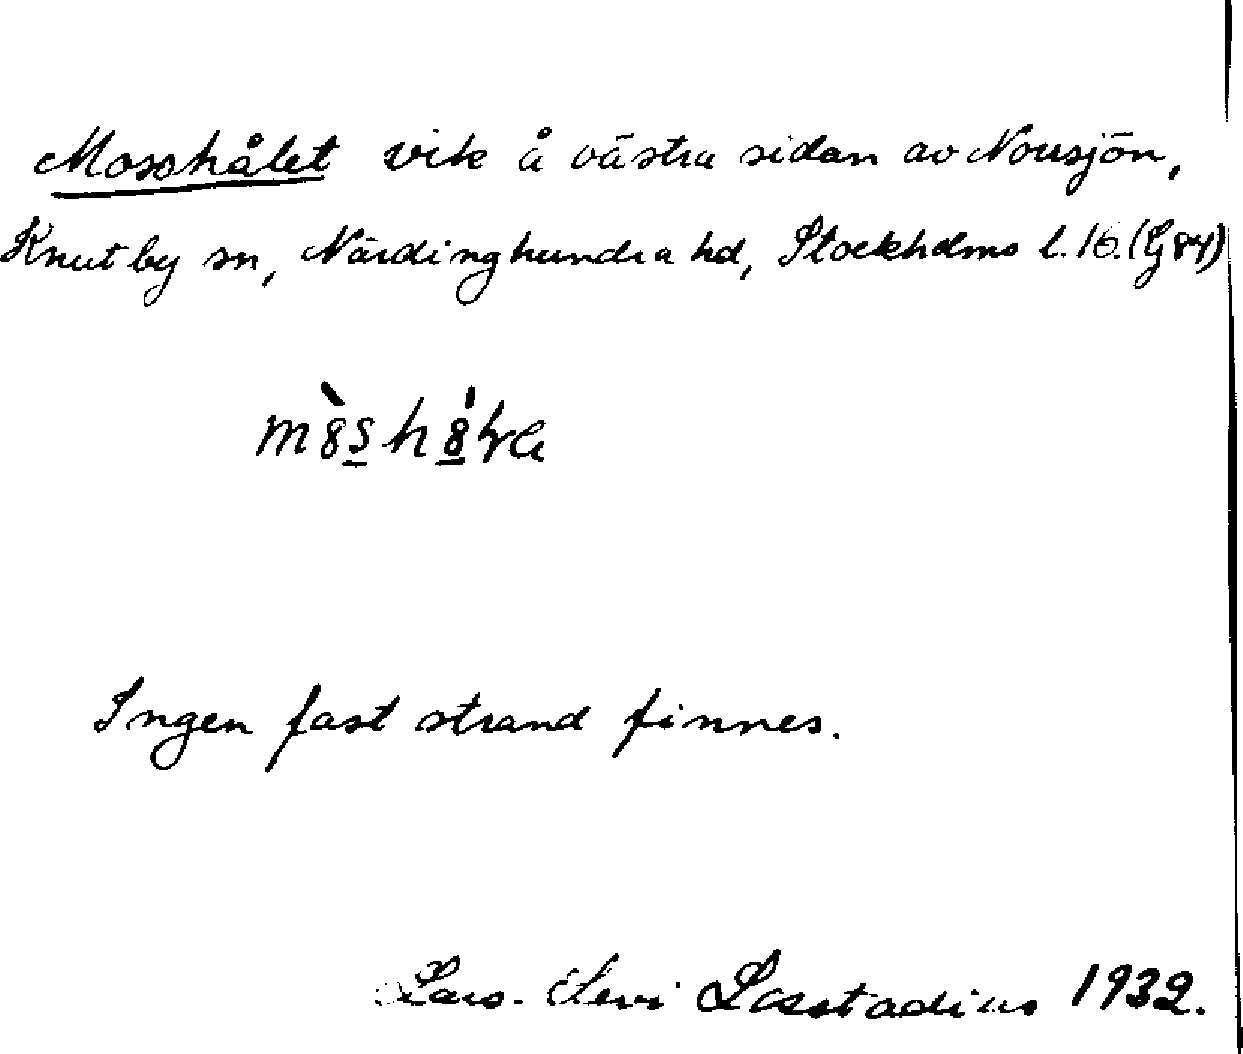 Mosshålet vik å västra sidan av Norrsjön,
Knutby sn, Närdinghundra hd, Stockholms l. 16. (G 84)
Ingen fast strand finnes.
Lars-Levi Læstadius 1932.